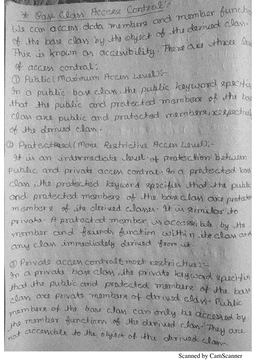 * Base Class Access Control :-
We can access data members and member function
of the base class by the object of the derived class.
This is known as accessibility. There are three
of access control :-
① Public (Maximum Access Level) :-
In a public base class, the public keyword specifies
that the public and protected members of the base
class are public and protected members, respectively
of the derived class.
② Protected (More Restrictive Access Level) :-
It is an intermediate level of protection between
public and private access control. In a protected base
class, the protected keyword specifies that the public
and protected members of the base class are protected
members of its derived classes. It is similar to
private. A protected member is accessible by the
member and friend function within its class and
any class immediately derived from it.
③ Private access control (most restrictive) :-
In a private base class, the private keyword specifies
that the public and protected members of the base
class are private members of derived class. Public
members of the base class can only be accessed by
the member functions of the derived class. They are
not accessible to the object of the derived class.
Scanned by CamScanner